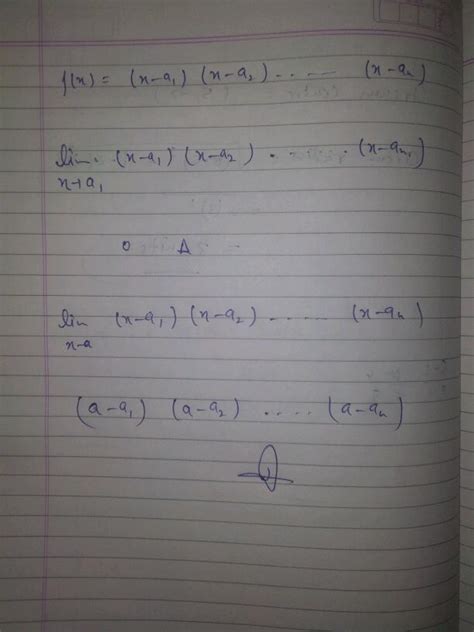 f(x) = (x-a₁) (x-a₂) ..... (x-aₙ)
lim. (x-a₁) (x-a₂) .... (x-aₙ)
x→a₁
0 A
lim (x-a₁) (x-a₂) ..... (x-aₙ)
x-a
(a-a₁) (a-a₂) ..... (a-aₙ)